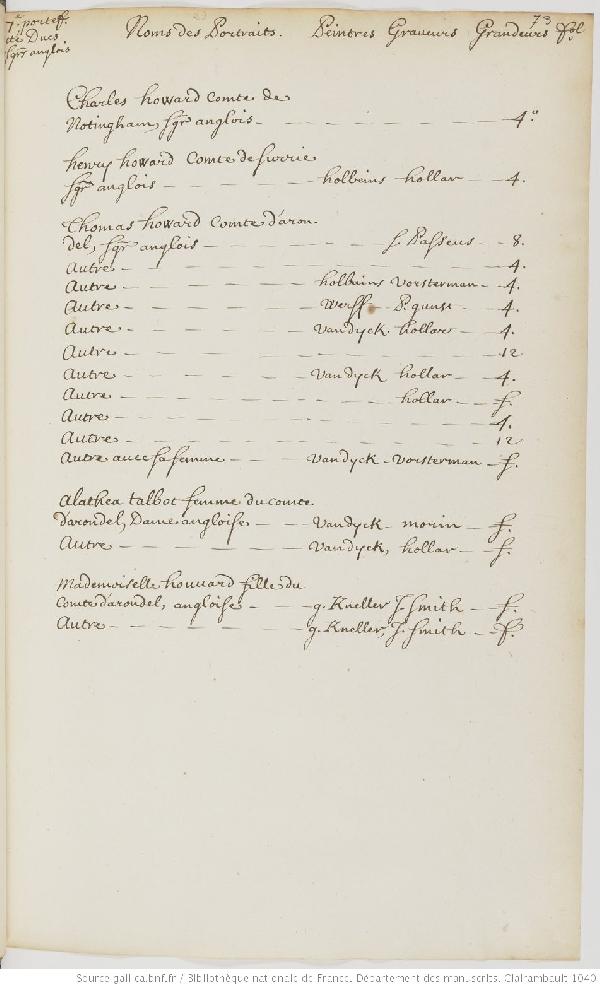 73
7.e portef.
de Ducs
sgrs anglois
Noms des Portraits. Peintres Graveurs Grandeurs fol.
Charles howard Comte de
Notingham, sgr anglois - 4.o
henry howard Comte de surrie
sgr anglois - holbeins hollar - 4.
Thomas howard Comte d'aron
del, sgr anglois - s. Passeus - 8.
Autre - 4.
Autre - holbeins Vorsterman - 4.
Autre - Werff - P. gunst - 4.
Autre - Vandyck hollar - 4.
Autre - 12
Autre - Vandyck hollar - 4.
Autre - hollar - f.
Autre - 4.
Autre - 12
Autre avec sa femme - Vandyck - Vorsterman - f.
Alathea talbot femme du comte
d'arondel, Dame angloise - Vandyck - morin - f.
Autre - Vandyck, hollar - f.
Mademoiselle houuard fille du
Comte d'arondel, angloise - g. Kneller J. Smith - f.
Autre - g. Kneller, J. Smith - f.
Source gallica.bnf.fr / Bibliothèque nationale de France. Département des manuscrits. Clairambault 1040